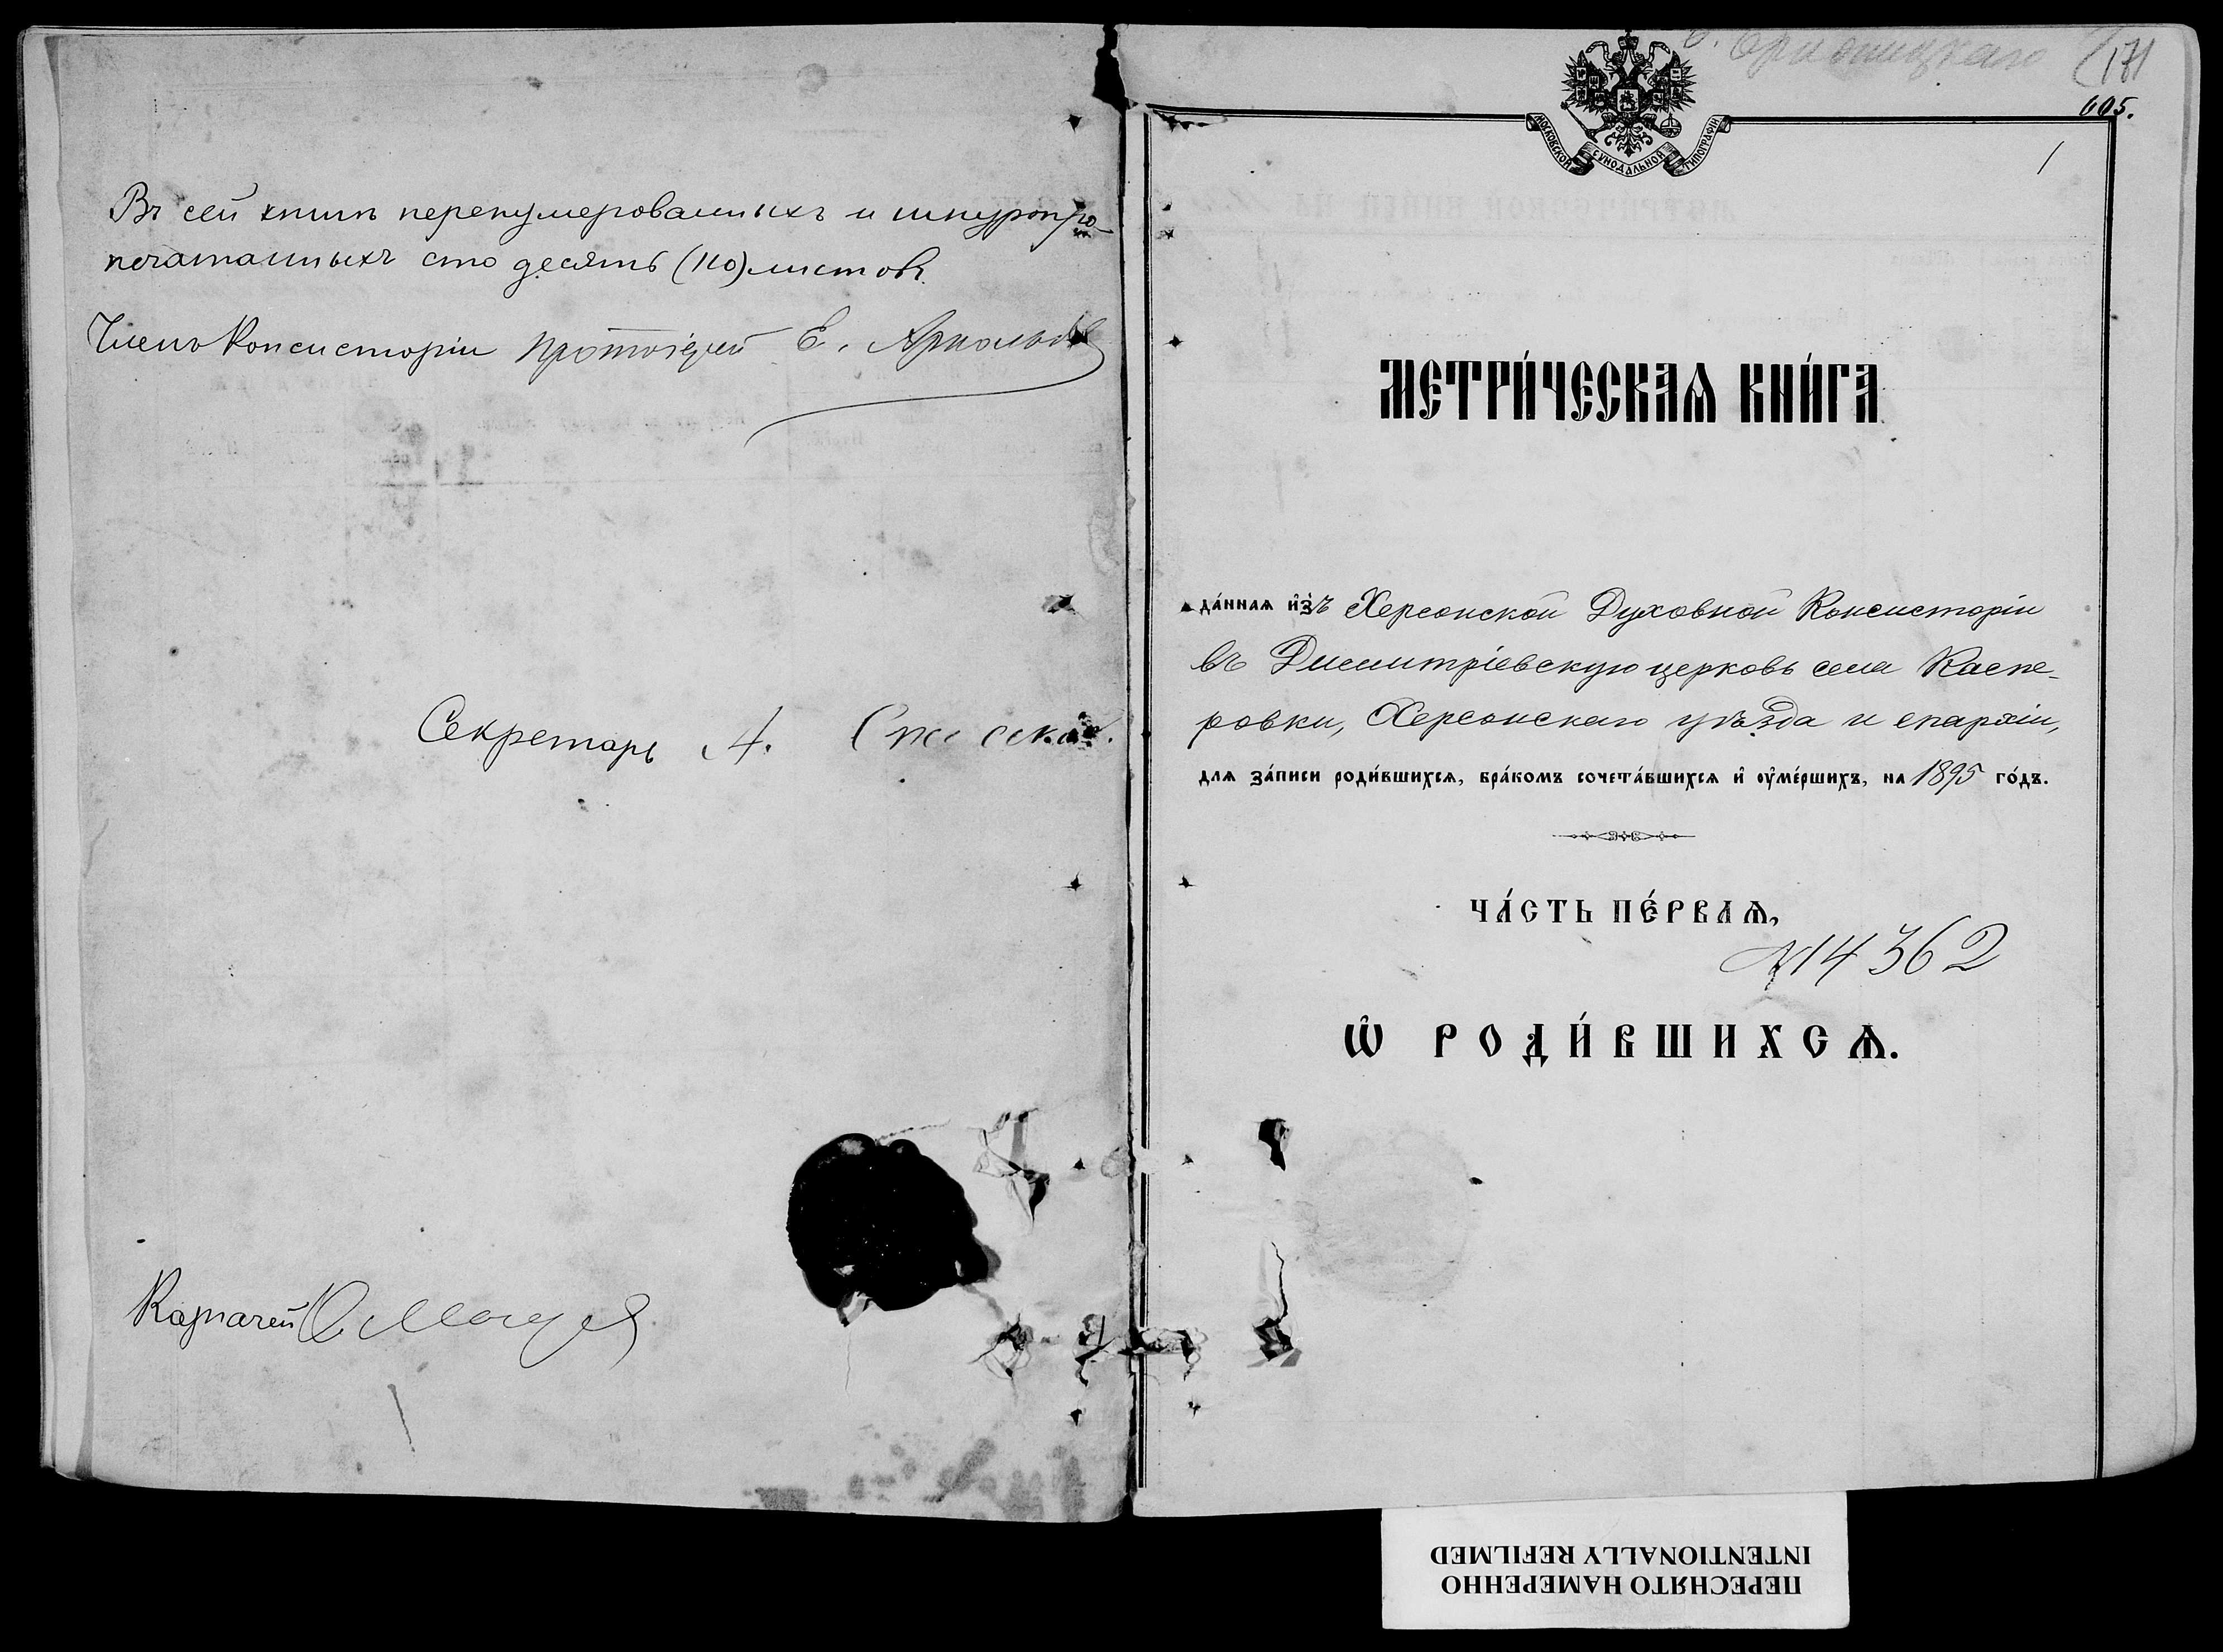 Въ сей книгѣ перенумерованныхъ и шнуропро-
печатанныхъ сто десять (110) листовъ.
Членъ Консисторіи Протоіерей Е. Арнольдов
Секретарь А.
Казначей
171
605.
1
МОСКОВСКОЙ СѴНОДАЛЬНОЙ ТИПОГРАФІИ
МЕТРИ́ЧЕСКАѦ КНИ́ГА
да́ннаѧ и҆зъ Херсонской Духовной Консисторіи
въ Димитріевскую церковь села Каспе-
ровки, Херсонскаго уѣзда и епархіи,
для за́писи роди́вшихсѧ, бра́комъ сочета́вшихсѧ и҆ ᲂу҆ме́ршихъ, на 1895 го́дъ.
ЧА́СТЬ ПЕ́РВАѦ,
№ 14362
Ѡ҆ РОДИ́ВШИХСѦ.
ПЕРЕСНЯТО НАМЕРЕННО
INTENTIONALLY REFILMED